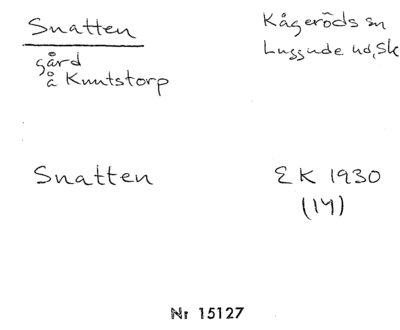 Snatten
Kågeröds sn
Luggude hd, Sk
gård
å Knutstorp
Snatten
EK 1930
(14)
Nr 15127